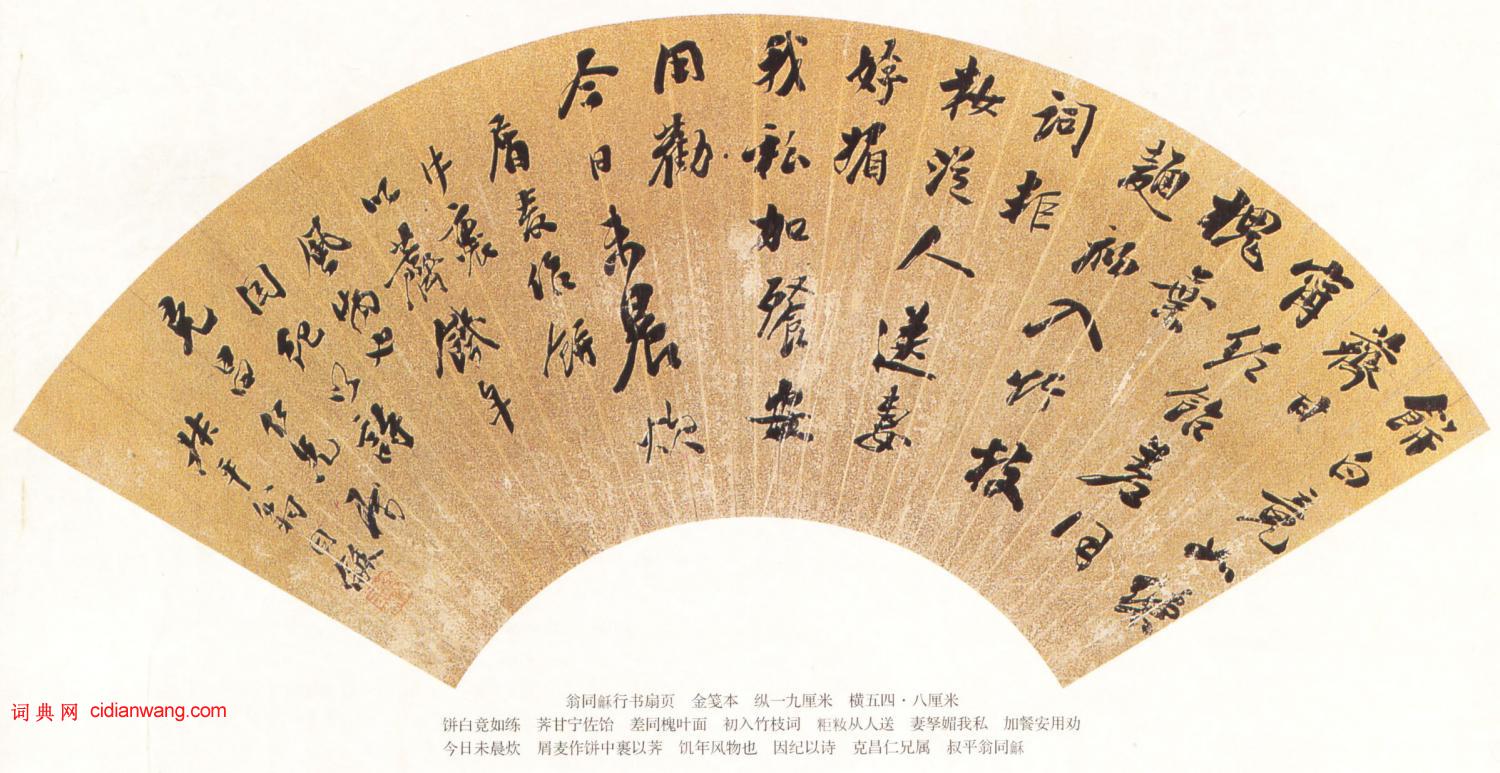 餅白竟如練
薺甘
甯佐飴差同
槐葉
麵初入竹枝
詞粔
籹從人送妻
孥媚
我私加餐安
用勸
今日未晨炊
屑麥作餅
中裹
以薺饑年
風物也
因紀以詩
克昌仁兄屬
叔平翁同龢
翁同龢行书扇页 金笺本 纵一九厘米 横五四·八厘米
饼白竟如练 荠甘宁佐饴 差同槐叶面 初入竹枝词 粔籹从人送 妻孥媚我私 加餐安用劝
今日未晨炊 屑麦作饼中裹以荠 饥年风物也 因纪以诗 克昌仁兄属 叔平翁同龢
词典网 cidianwang.com